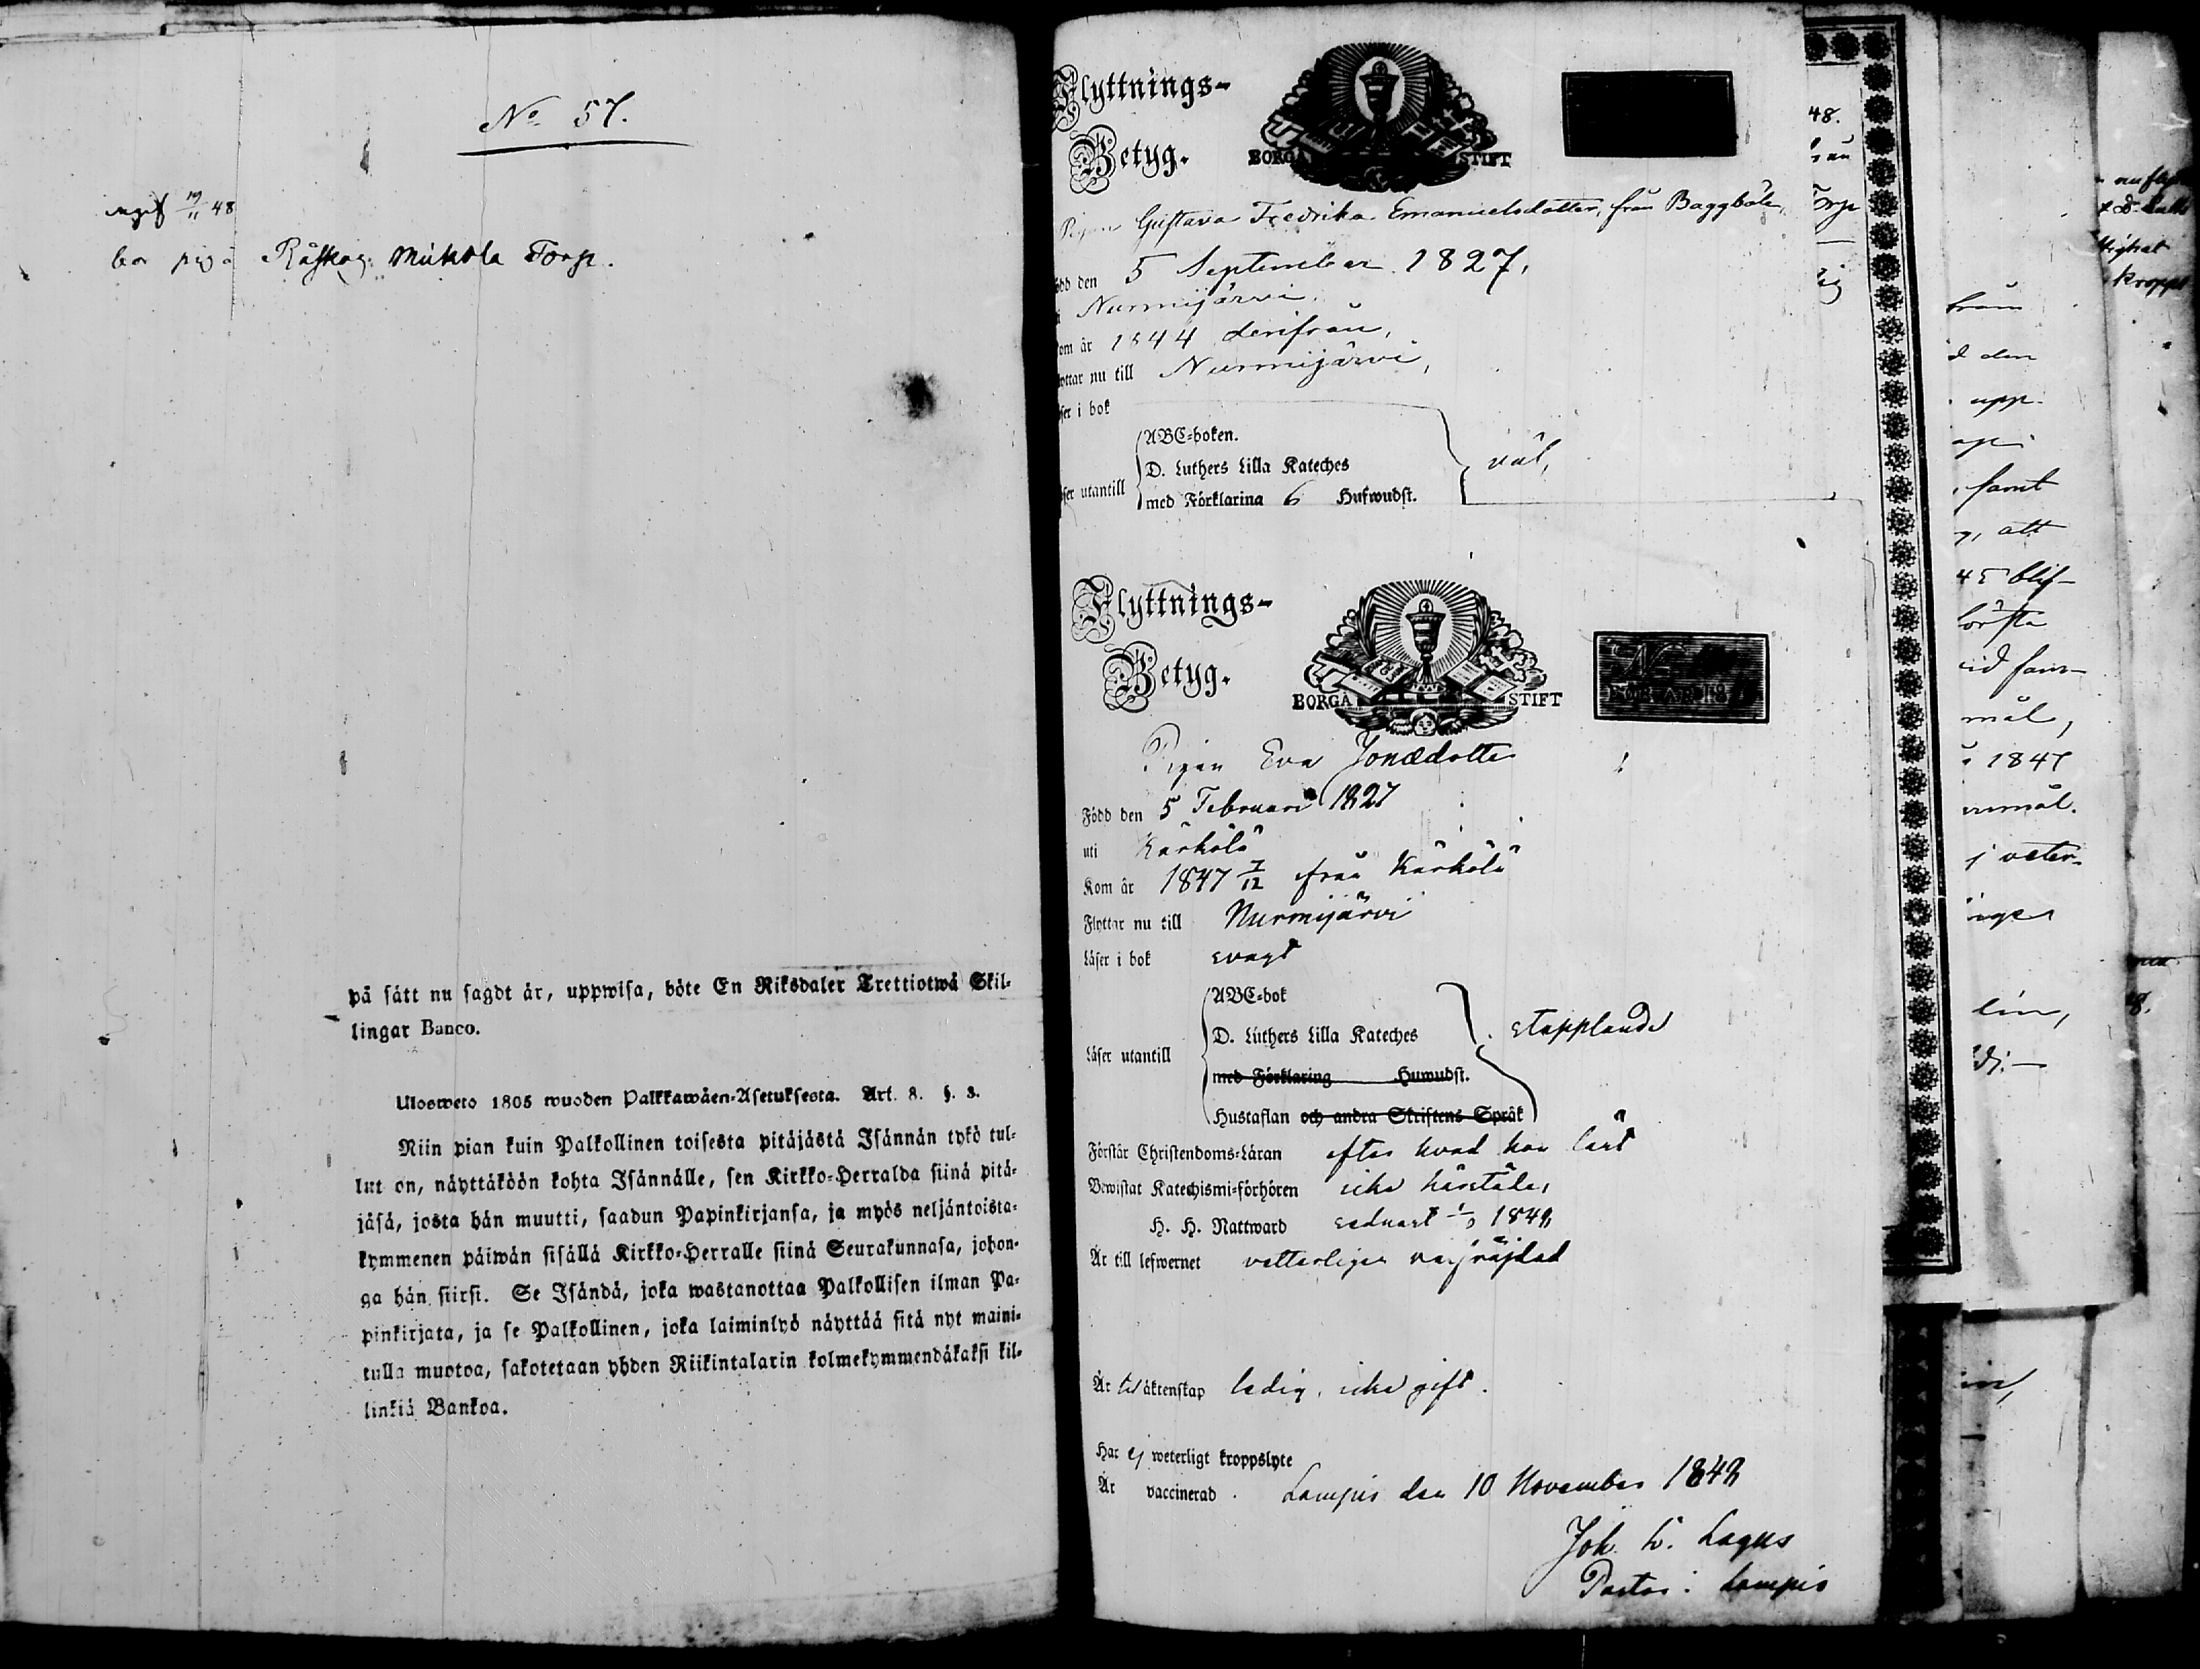 No 57.
19/11 48
Råskog Mickola Torp.
på sätt nu sagdt är, uppwisa, böte En Riksdaler Trettiotwå Skil-
lingar Banco.
Ulosweto 1805 wuoden Palkkawäen-Asetuksesta. Art. 8. §. 3.
Niin pian kuin Palkollinen toisesta pitäjästä Isännän tykö tul-
lut on, näyttäköön kohta Isännälle, sen Kirkko-Herralda siinä pitä-
jäsä, josta hän muutti, saadun Papinkirjansa, ja myös neljäntoista-
kymmenen päiwän sisällä Kirkko-Herralle siinä Seurakunnasa, johon-
ga hän siirsi. Se Isändä, joka wastanottaa Palkollisen ilman Pa-
pinkirjata, ja se Palkollinen, joka laiminlyö näyttää sitä nyt maini-
tulla muotoa, sakotetaan yhden Riikintalarin kolmekymmendäkaksi kil-
linkiä Bankoa.
Flyttnings-
Betyg.
BORGÅ STIFT
Pigan Gustava Fredrika Emanuelsdotter, från Baggböle,
född den 5 September 1827,
i Nurmijärvi,
Kom år 1844 derifrån,
flyttar nu till Nurmijärvi,
läser i bok
ABC-boken.
D. Luthers Lilla Kateches väl,
läser utantill
med Förklaring 6 Hufwudst.
Flyttnings-
Betyg.
BORGÅ STIFT
Pigan Eva Jonædotter
Född den 5 Februari 1827
uti Kärkölä
Kom år 1847 7/12 från Kärkölä
Flyttar nu till Nurmijärvi
Läser i bok svagt
ABC-bok
D. Luthers Lilla Kateches stapplande
Läser utantill
med Förklaring Huwudst.
Hustaflan och andra Skriftens Språk
Förstår Christendoms-Läran efter hvad hon lärt
Bewistat Katechismi-förhören icke härstädes
H. H. Nattward senast 1848
Är till lefwernet vetterligen välfräjdad
Är til äktenskap ledig, icke gift.
Har ej weterligt kroppslyte
Är vaccinerad. Lampis den 10 November 1848
Joh. W. Lagus
Pastor i Lampis
48.
Torp
från
d den
upp-
samt
att
45 blif-
mål,
1847
veter-